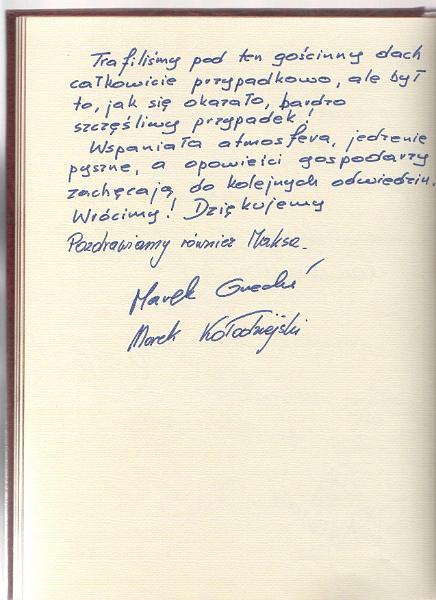 Trafiliśmy pod ten gościnny dach
całkowicie przypadkowo, ale był
to, jak się okazało, bardzo
szczęśliwy przypadek!
Wspaniała atmosfera, jedzenie
pyszne, a opowieści gospodarzy
zachęcają do kolejnych odwiedzin.
Wrócimy! Dziękujemy
Pozdrawiamy również Maksa.
Marek
Marek Kołodziejski